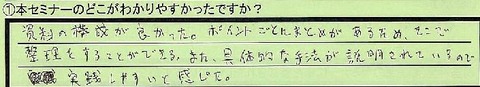 ①本セミナーのどこがわかりやすかったですか?
資料の構成が良かった。ポイントごとにまとめがあるため、そこで
整理をすることができる。また、具体的な手法が説明されているので
実践しやすいと感じた。